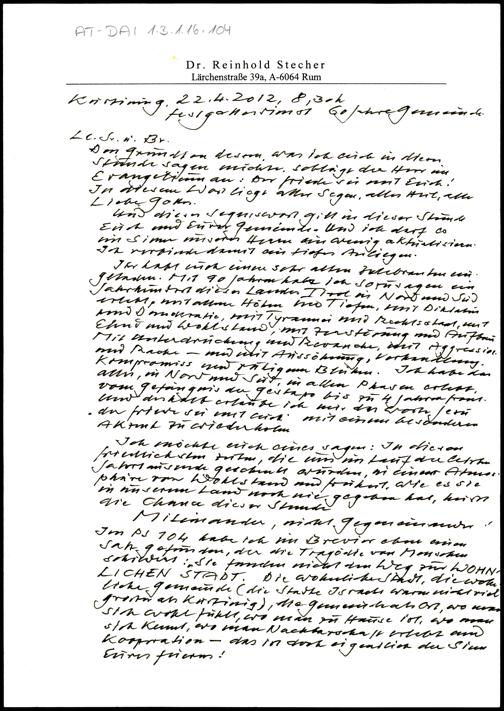 AT-DAI 1.3.1.16-104
Dr. Reinhold Stecher
Lärchenstraße 39a, A-6064 Rum
Kurtinig, 22.4.2012, 8,30h
Festgottesdienst 60 Jahre Gemeinde
Le. Sr. u. Br.
Den Grundton dessen, was ich euch in dieser
Stunde sagen möchte, schlägt der Herr im
Evangelium an: Der Friede sei mit Euch!
In diesem Wort liegt aller Segen, alles Heil, alle
Liebe Gottes.
Und dieses Segenswort gilt in dieser Stunde
Euch und Eurer Gemeinde. Und ich darf es
im Sinne unseres Herrn ein wenig aktualisieren.
Ich verbinde damit ein tiefes Anliegen.
Ihr habt euch einen sehr alten Zelebranten ein-
geladen. Mit 90 Jahren habe ich sozusagen ein
Jahrhundert dieses Landes Tirol in Nord und Süd
erlebt, mit allen Höhen und Tiefen, mit Diktatur
und Demokratie, mit Tyrannei und Rechtsstaat, mit
Elend und Wohlstand, mit Zerstörung und Aufbau
Mit Unterdrückung und Revanche, mit Aggression
und Rache – und mit Aussöhnung, Verhandlung,
Kompromiss und ruhigem Blühen. Ich habe das
alles, in Nord und Süd, in allen Phasen erlebt,
vom Gefängnis der Gestapo bis zu 4 Jahren Front.
Und deshalb erlaube ich mir das Wort Jesu
der Friede sei mit Euch mit einem besonderen
Akzent zu wiederholen
Ich möchte euch eines sagen: In diesen
friedlichsten Zeiten, die uns im Lauf der letzten
Jahrtausende geschenkt wurden, in einer Atmos-
phäre von Wohlstand und Freiheit, wie es sie
in unserem Land noch nie gegeben hat, heisst
die Chance dieser Stunde
Miteinander, nicht Gegeneinander!
Im Ps 104 habe ich im Brevier eben einen
Satz gefunden, der die Tragödie von Menschen
schildert: „Sie fanden nicht den Weg zur WOHN-
LICHEN STADT. Die wohnliche Stadt, die wohn-
liche Gemeinde (die Städte Israels waren nicht viel
größer als Kurtinig), die Gemeinde als Ort, wo man
sich wohl fühlt, wo man zu Hause ist, wo man
sich kennt, wo man Nachbarschaft erlebt und
Kooperation – das ist doch eigentlich der Sinn
Eures Feierns!